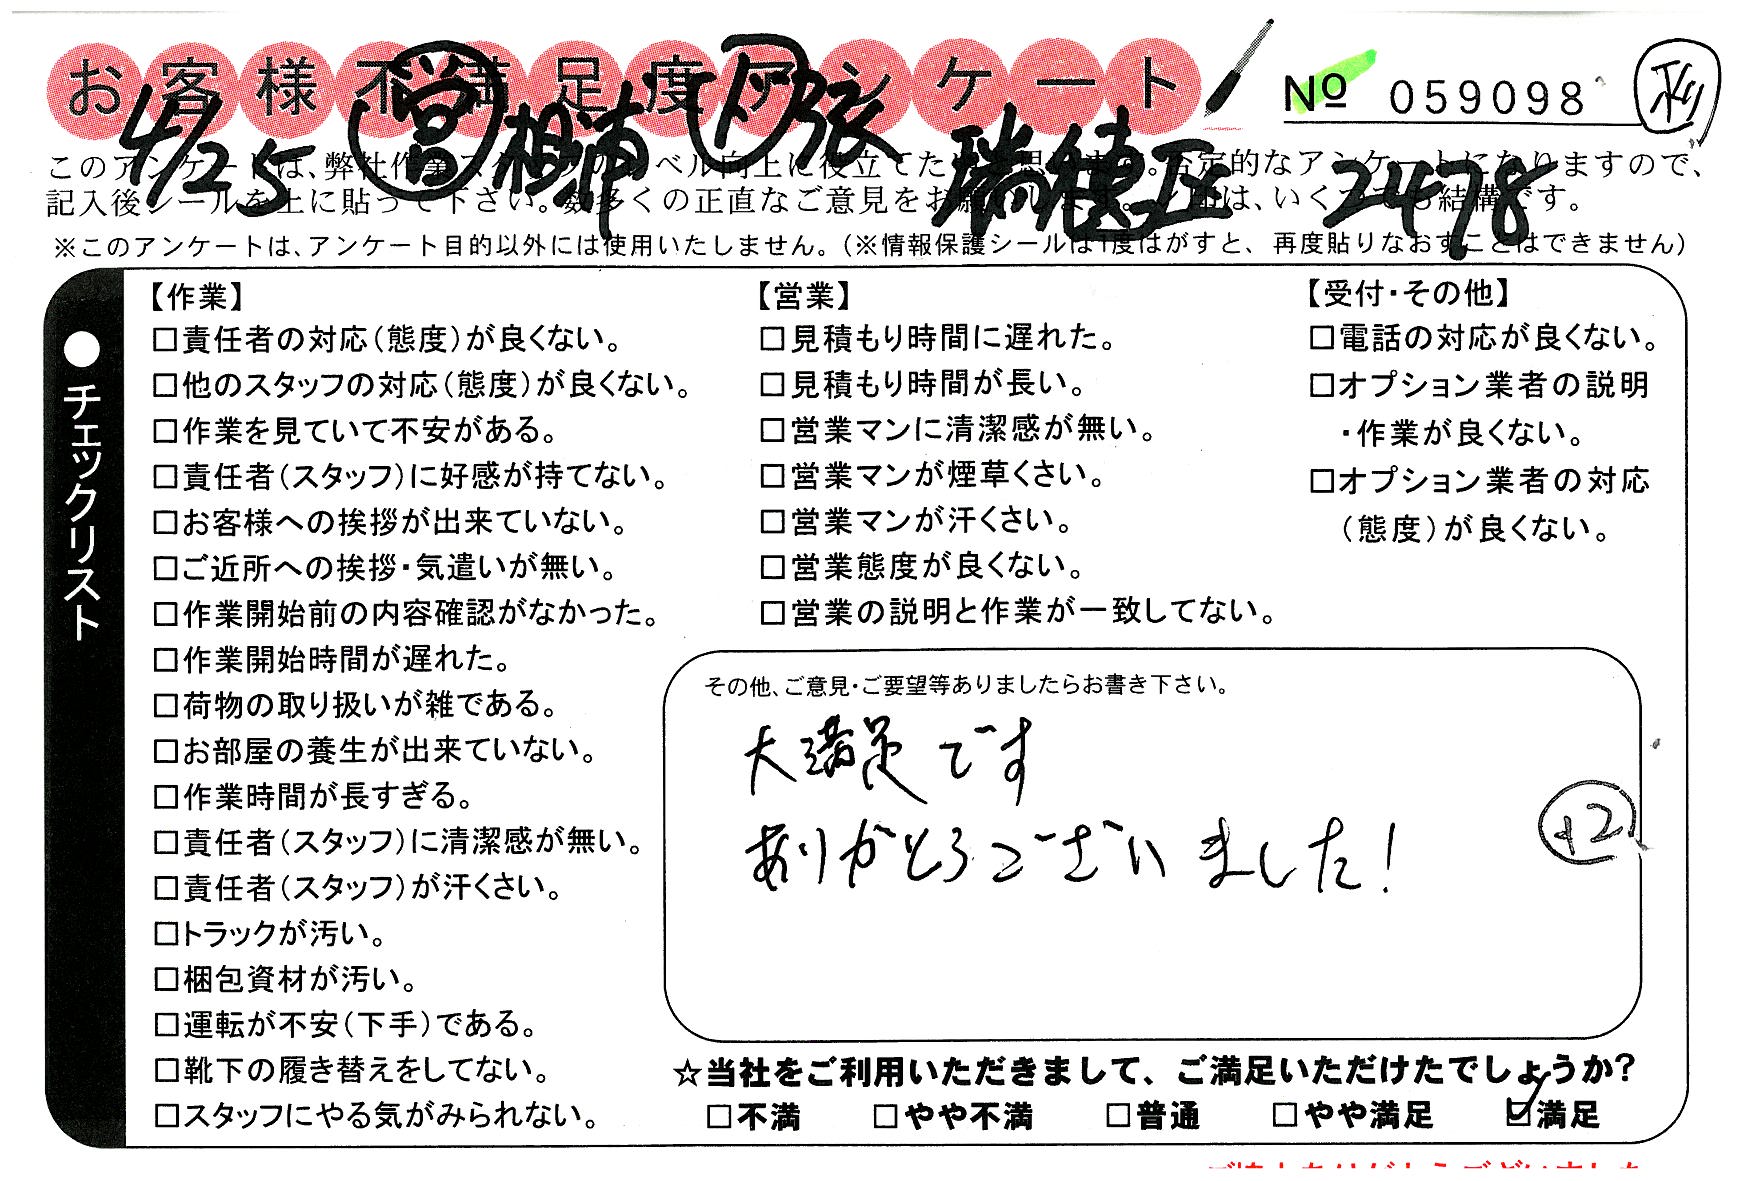 お客様不満足度アンケート
No 059098
4/25 営 相浦 夕張 瑞穂区 2478
このアンケートは、弊社作業スタッフのレベル向上に役立てたいと思います。否定的なアンケートになりますので、
記入後シールを上に貼って下さい。数多くの正直なご意見をお願いします。レ印は、いくつでも結構です。
※このアンケートは、アンケート目的以外には使用いたしません。(※情報保護シールは1度はがすと、再度貼りなおすことはできません)
●チェックリスト
【作業】
□責任者の対応(態度)が良くない。
□他のスタッフの対応(態度)が良くない。
□作業を見ていて不安がある。
□責任者(スタッフ)に好感が持てない。
□お客様への挨拶が出来ていない。
□ご近所への挨拶・気遣いが無い。
□作業開始前の内容確認がなかった。
□作業開始時間が遅れた。
□荷物の取り扱いが雑である。
□お部屋の養生が出来ていない。
□作業時間が長すぎる。
□責任者(スタッフ)に清潔感が無い。
□責任者(スタッフ)が汗くさい。
□トラックが汚い。
□梱包資材が汚い。
□運転が不安(下手)である。
□靴下の履き替えをしてない。
□スタッフにやる気がみられない。
【営業】
□見積もり時間に遅れた。
□見積もり時間が長い。
□営業マンに清潔感が無い。
□営業マンが煙草くさい。
□営業マンが汗くさい。
□営業態度が良くない。
□営業の説明と作業が一致してない。
【受付・その他】
□電話の対応が良くない。
□オプション業者の説明
・作業が良くない。
□オプション業者の対応
(態度)が良くない。
その他、ご意見・ご要望等ありましたらお書き下さい。
大満足です
ありがとうございました!
+2
☆当社をご利用いただきまして、ご満足いただけたでしょうか?
□不満 □やや不満 □普通 □やや満足 ☑満足